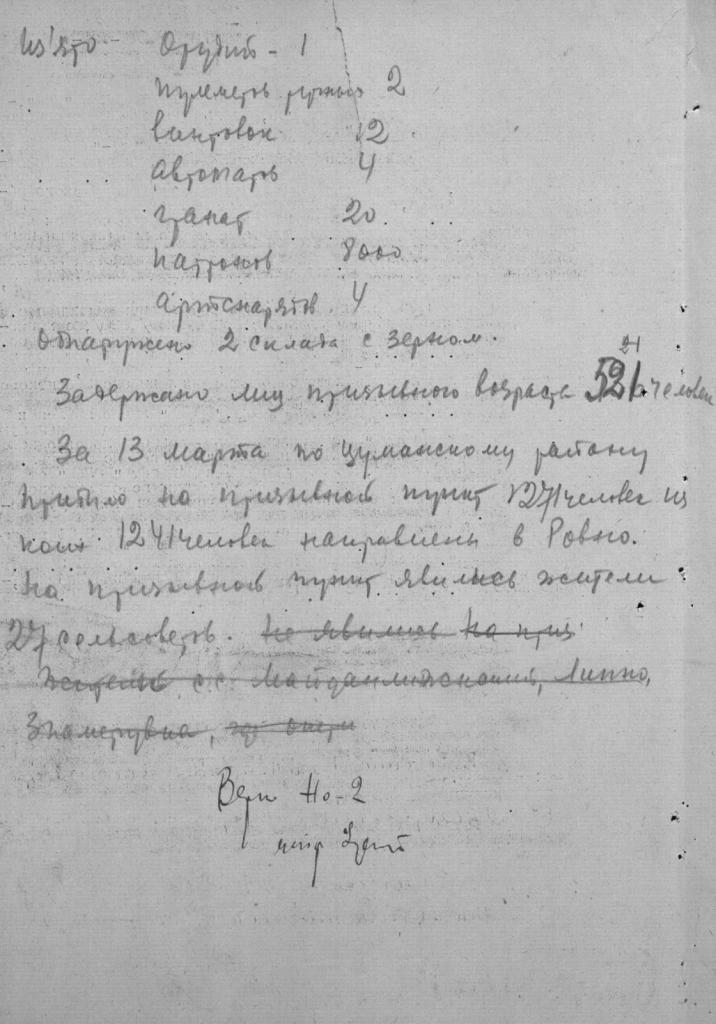 Из'ято Орудий - 1
пулеметов ручных 2
винтовок 12
автоматов 4
гранат 20
патронов 8000
артснарядов 4
Обнаружено 2 склада с зерном.
21
Задержано лиц призывного возраста 521 человек
За 13 марта по Цуманскому району
прибыло на призывной пункт 1271 человек из
коих 1241 человек направлены в Ровно.
На призывной пункт явились жители
27 сельсоветов. Не явились на приз
Жители с.с. Липно,
Верно Но-2